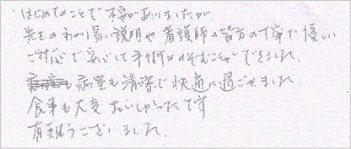 はじめてのことで不安がありましたが
先生のわかり易い説明や看護師の皆方の丁寧で優しい
ご対応で安心して手術にのぞむことができました。
病室も清潔で快適に過ごせました
食事も大変おいしかったです
有難うございました。